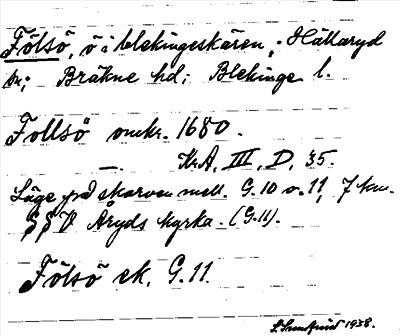 Fölsö, ö i blekingeskären; Hällaryd
sn; Bräkne hd; Blekinge l.
Follsö omkr. 1680.
— Kr.A, III, D, 35.
Läge på skarven mell. G.10 o. 11, 7 km.
SSV Aryds kyrka. (G.11).
Fölsö ek. G.11.
1938.